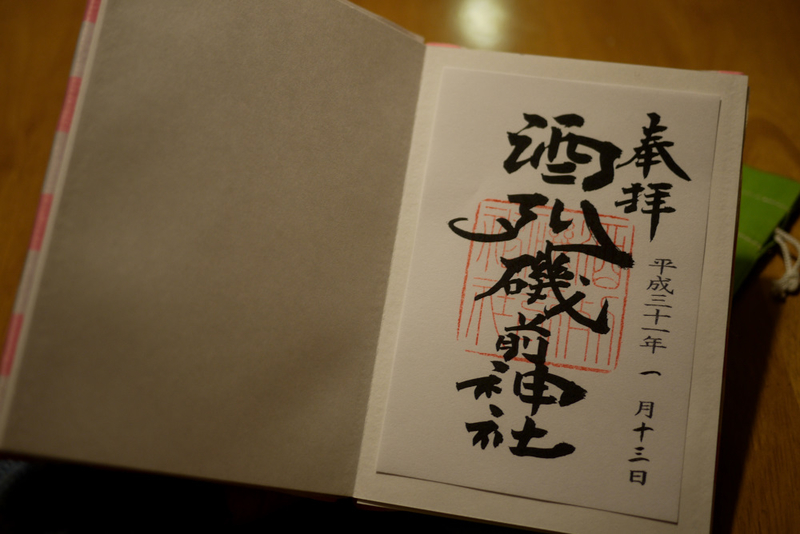 奉拝
平成三十一年 一月十三日
酒列磯前神社